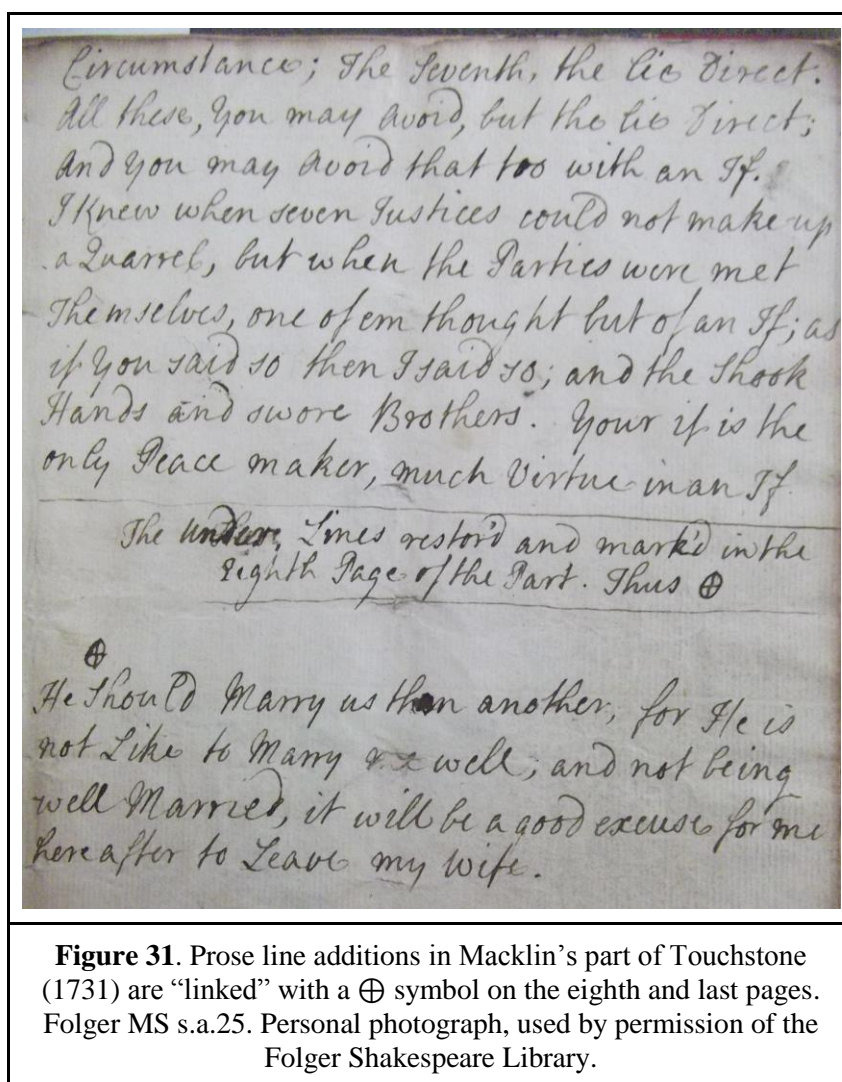 Circumstance; The Seventh, the lie Direct.
All these, You may avoid, but the lie Direct;
And You may avoid that too with an If.
I Knew when seven Justices could not make up
a Quarrel, but when the Parties were met
Themselves, one of em thought but of an If; as
if You said so then I said so; and the Shook
Hands and swore Brothers. Your if is the
only Peace maker, much Virtue in an If
The Lines restor'd and mark'd in the
Eighth Page of the Part. Thus ⊕
⊕
He Should Marry us than another, for He is
not Like to Marry well; and not being
well Married, it will be a good excuse for me
hereafter to Leave my Wife.
Figure 31. Prose line additions in Macklin's part of Touchstone
(1731) are “linked” with a ⊕ symbol on the eighth and last pages.
Folger MS s.a.25. Personal photograph, used by permission of the
Folger Shakespeare Library.